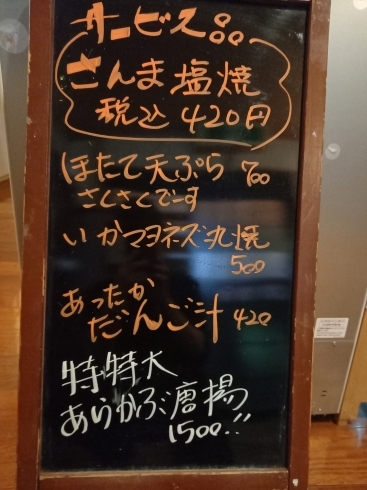 サービス品
さんま塩焼
税込420円
ほたて天ぷら 700
さくさくでーす
いかマヨネーズ丸焼
500
あったか
だんご汁 420
特特大
あらかぶ唐揚
1500!!